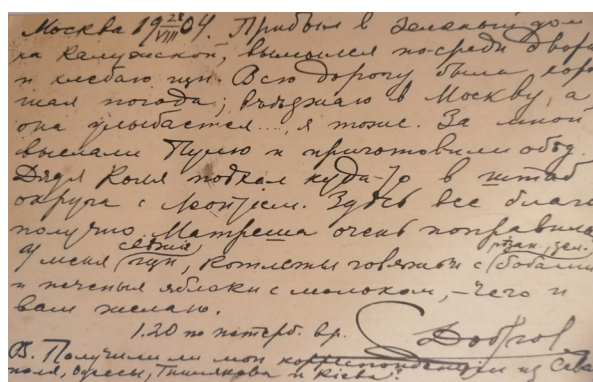 Москва 19 28/VIII 04. Прибыл в зеленый дом
на Калужской, вымылся по-среди двора
и хлебаю щи. Всю дорогу была хоро
шая погода; въезжаю в Москву, а
она улыбается..., я тоже. За мной
выслали Пулю и приготовили обед.
Дядя Коля поехал куда-то в штаб
округа с Здесь все благо
получно. Матреша очень поправила
у меня свежие щи, котлеты говяжьи с бобами
и печеныя яблоки с молоком, – чего и
вам желаю.
1.20 по петерб. вр.
Р. Получили ли мои корреспонденции из Сева
поля, Одессы, и Кіева?